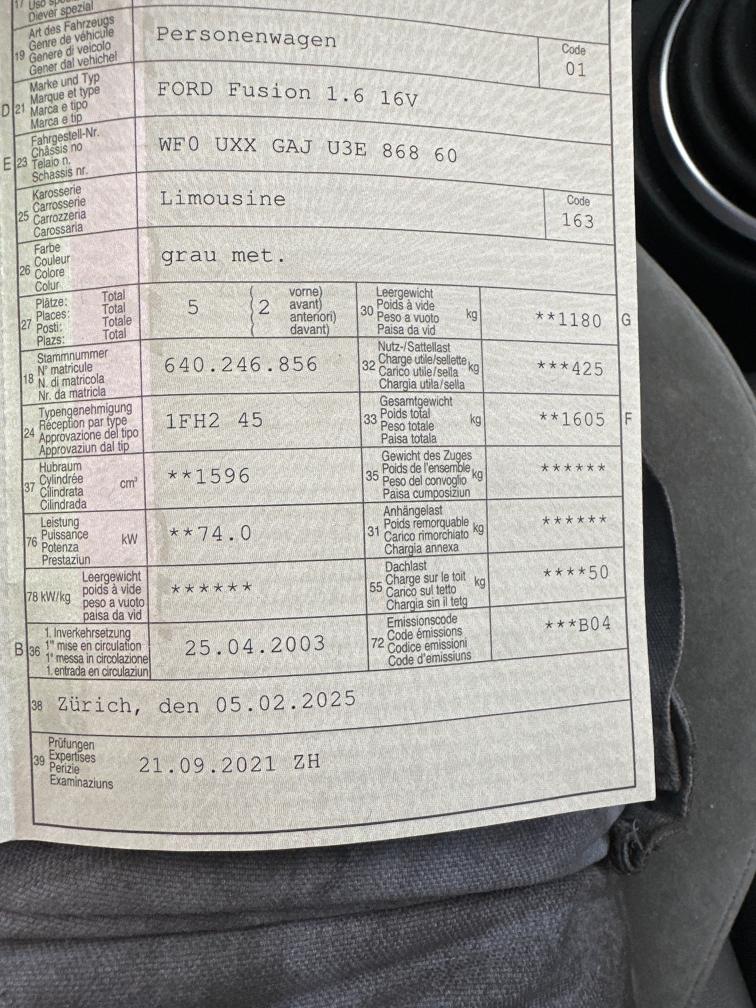 17 Uso
Diever spezial
19 Art des Fahrzeugs
Genre de véhicule
Genere di veicolo
Gener dal vehichel
Personenwagen
Code
01
D 21 Marke und Typ
Marque et type
Marca e tipo
Marca e tip
FORD Fusion 1.6 16V
E 23 Fahrgestell-Nr.
Châssis no
Telaio n.
Schassis nr.
WF0 UXX GAJ U3E 868 60
25 Karosserie
Carrosserie
Carrozzeria
Carossaria
Limousine
Code
163
26 Farbe
Couleur
Colore
Colur
grau met.
27 Plätze: Total
Places: Total
Posti: Totale
Plazs: Total
5 2 vorne)
avant)
anteriori)
davant)
30 Leergewicht
Poids à vide
Peso a vuoto
Paisa da vid
kg
**1180 G
18 Stammnummer
N° matricule
N. di matricola
Nr. da matricla
640.246.856
32 Nutz-/Sattellast
Charge utile/sellette
Carico utile/sella
Chargia utila/sella
kg
***425
24 Typengenehmigung
Réception par type
Approvazione del tipo
Approvaziun dal tip
1FH2 45
33 Gesamtgewicht
Poids total
Peso totale
Paisa totala
kg
**1605 F
37 Hubraum
Cylindrée
Cilindrata
Cilindrada
cm³
**1596
35 Gewicht des Zuges
Poids de l'ensemble
Peso del convoglio
Paisa cumposiziun
kg
******
76 Leistung
Puissance
Potenza
Prestaziun
kW
**74.0
31 Anhängelast
Poids remorquable
Carico rimorchiato
Chargia annexa
kg
******
78 kW/kg Leergewicht
poids à vide
peso a vuoto
paisa da vid
******
55 Dachlast
Charge sur le toit
Carico sul tetto
Chargia sin il tetg
kg
****50
B 36 1. Inverkehrsetzung
1re mise en circulation
1a messa in circolazione
1. entrada en circulaziun
25.04.2003
72 Emissionscode
Code émissions
Codice emissioni
Code d'emissiuns
***B04
38 Zürich, den 05.02.2025
39 Prüfungen
Expertises
Perizie
Examinaziuns
21.09.2021 ZH